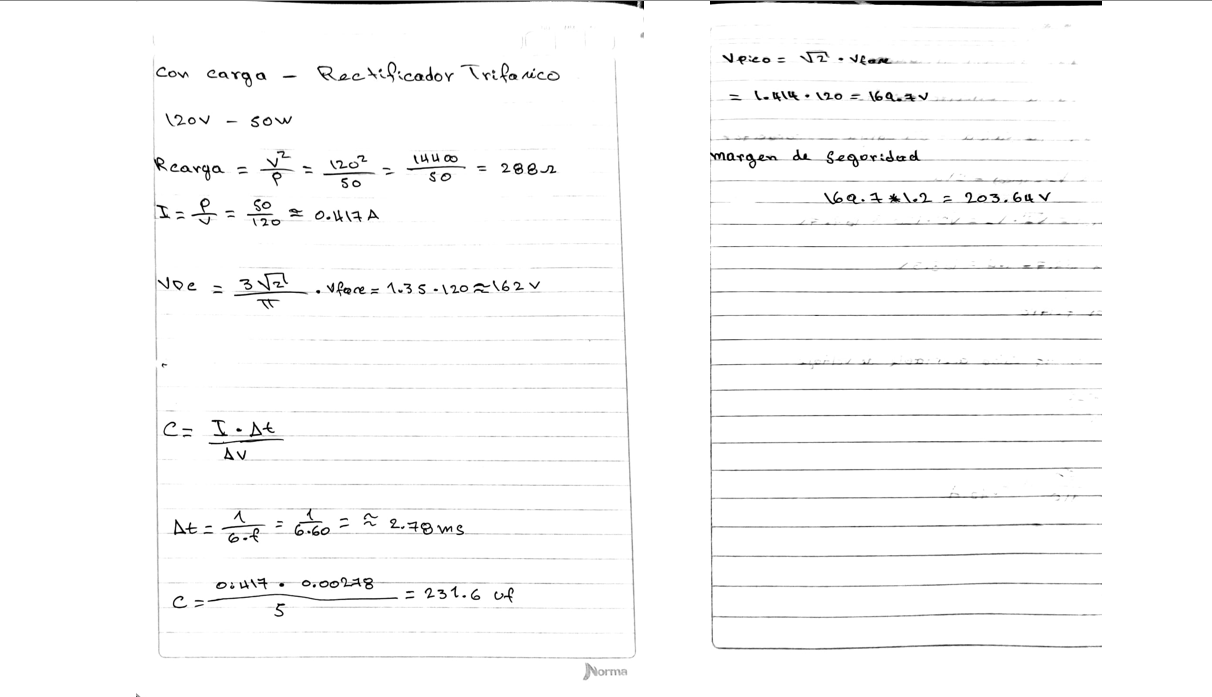 Con carga - Rectificador Trifasico
120V - 50W
Rcarga = V²/P = 120²/50 = 14400/50 = 288Ω
I = P/V = 50/120 ≈ 0.417A
VDC = 3√2/π . Vfase = 1.35 . 120 ≈ 162 V
C = I . Δt / ΔV
Δt = 1/6.f = 1/6.60 = ≈ 2.78 ms
C = 0.417 . 0.00278 / 5 = 231.6 uf
Norma
Vpico = √2 . Vfase
= 1.414 . 120 = 169.7V
margen de Segoridad
169.7 * 1.2 = 203.64 V